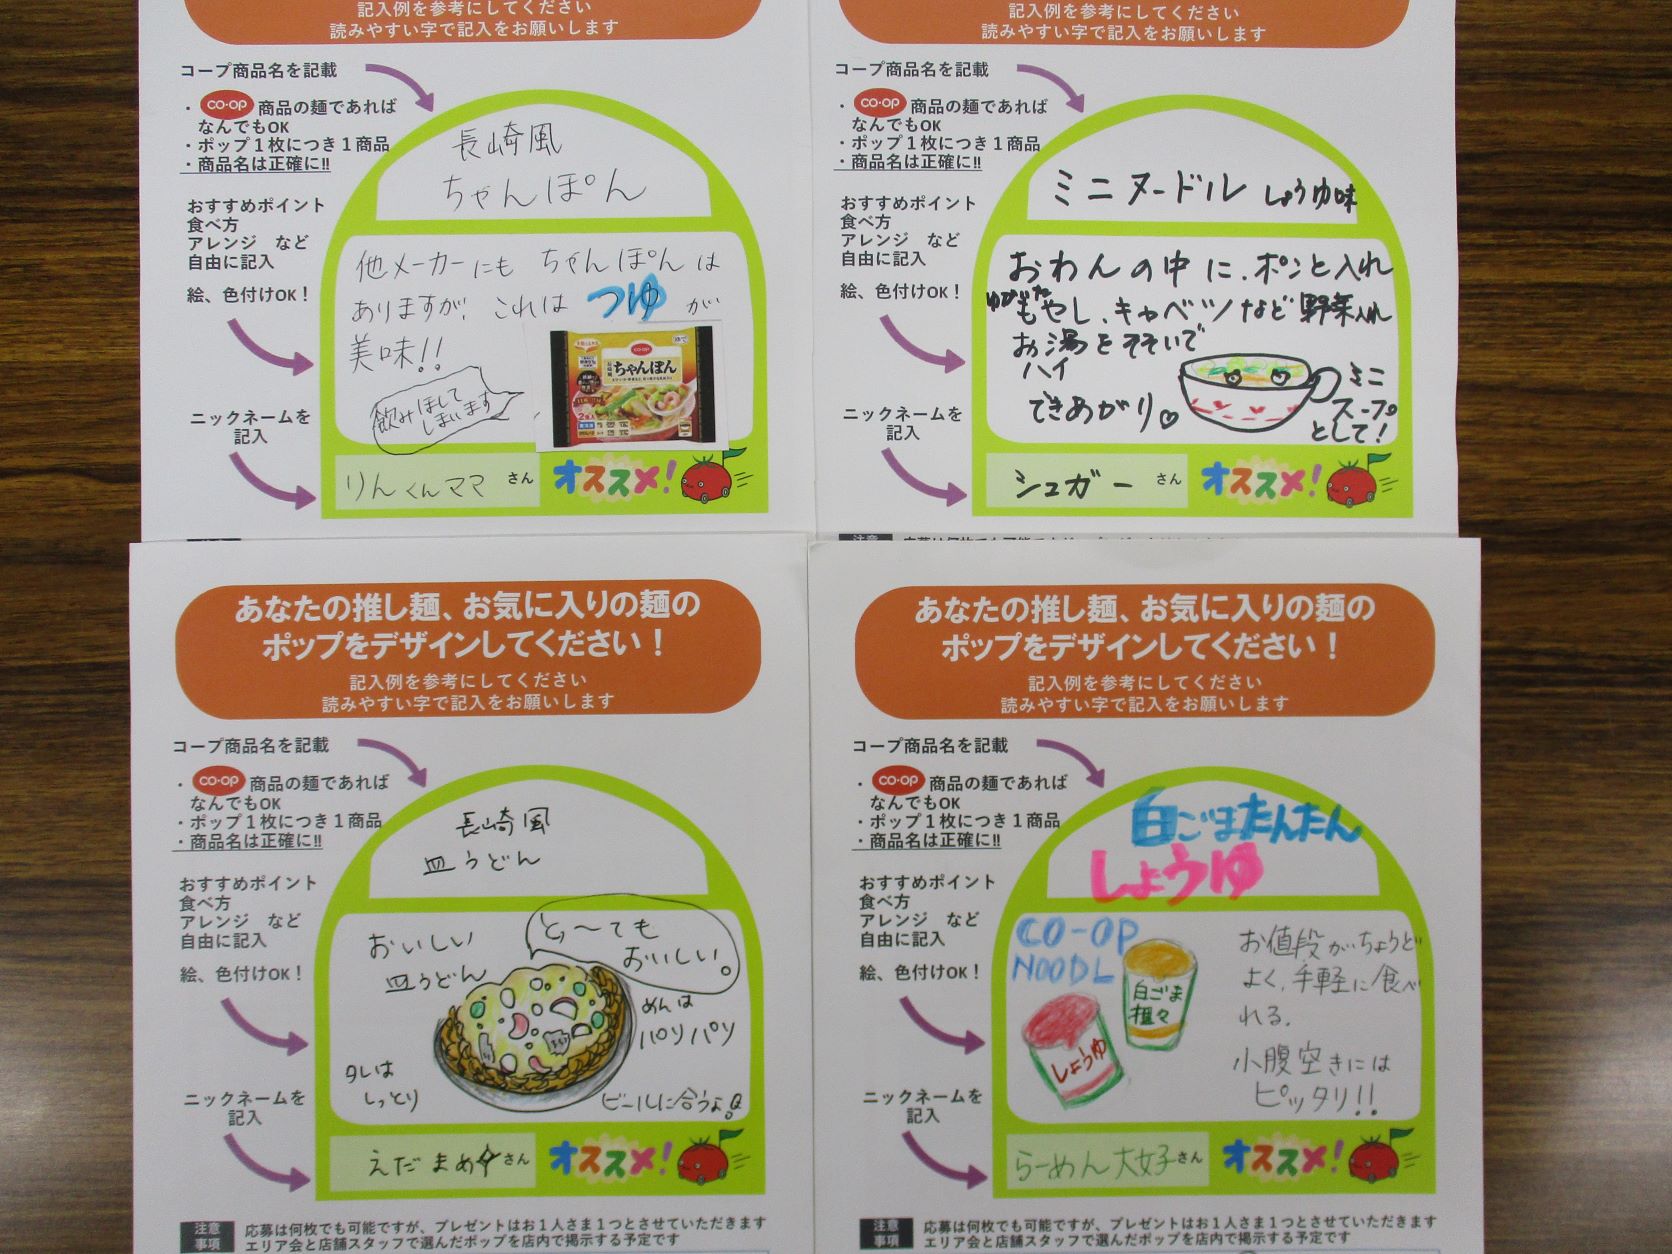 記入例を参考にしてください
読みやすい字で記入をお願いします
コープ商品名を記載
・CO・OP 商品の麺であれば
なんでもOK
・ポップ1枚につき1商品
・商品名は正確に!!
おすすめポイント
食べ方
アレンジ など
自由に記入
絵、色付けOK!
ニックネームを
記入
長崎風
ちゃんぽん
他メーカーにも ちゃんぽんは
ありますが、これは つゆ が
美味!!
飲みほして
しまいます
CO・OP
長崎風
ちゃんぽん
2食入
りんくんママ さん
オススメ!
記入例を参考にしてください
読みやすい字で記入をお願いします
コープ商品名を記載
・CO・OP 商品の麺であれば
なんでもOK
・ポップ1枚につき1商品
・商品名は正確に!!
おすすめポイント
食べ方
アレンジ など
自由に記入
絵、色付けOK!
ニックネームを
記入
ミニヌードル しょうゆ味
おわんの中に、ポンと入れ
ゆがいた
もやし、キャベツなど野菜入れ
お湯をそそいで
ハイ
できあがり♡
ミニ
スープ
として!
シュガー さん
オススメ!
注意
あなたの推し麺、お気に入りの麺の
ポップをデザインしてください!
記入例を参考にしてください
読みやすい字で記入をお願いします
コープ商品名を記載
・CO・OP 商品の麺であれば
なんでもOK
・ポップ1枚につき1商品
・商品名は正確に!!
おすすめポイント
食べ方
アレンジ など
自由に記入
絵、色付けOK!
ニックネームを
記入
長崎風
皿うどん
おいしい
皿うどん
と〜ても
おいしい。
めんは
パリパリ
タレは
しっとり
ビールに合うよ!
えだまめ さん
オススメ!
注意
事項
応募は何枚でも可能ですが、プレゼントはお1人さま1つとさせていただきます
エリア会と店舗スタッフで選んだポップを店内で掲示する予定です
あなたの推し麺、お気に入りの麺の
ポップをデザインしてください!
記入例を参考にしてください
読みやすい字で記入をお願いします
コープ商品名を記載
・CO・OP 商品の麺であれば
なんでもOK
・ポップ1枚につき1商品
・商品名は正確に!!
おすすめポイント
食べ方
アレンジ など
自由に記入
絵、色付けOK!
ニックネームを
記入
白ごまたんたん
しょうゆ
CO-OP
NOODL
白ごま
担々
しょうゆ
お値段がちょうど
よく、手軽に食べ
れる。
小腹空きには
ピッタリ!!
らーめん大好子 さん
オススメ!
注意
事項
応募は何枚でも可能ですが、プレゼントはお1人さま1つとさせていただきます
エリア会と店舗スタッフで選んだポップを店内で掲示する予定です